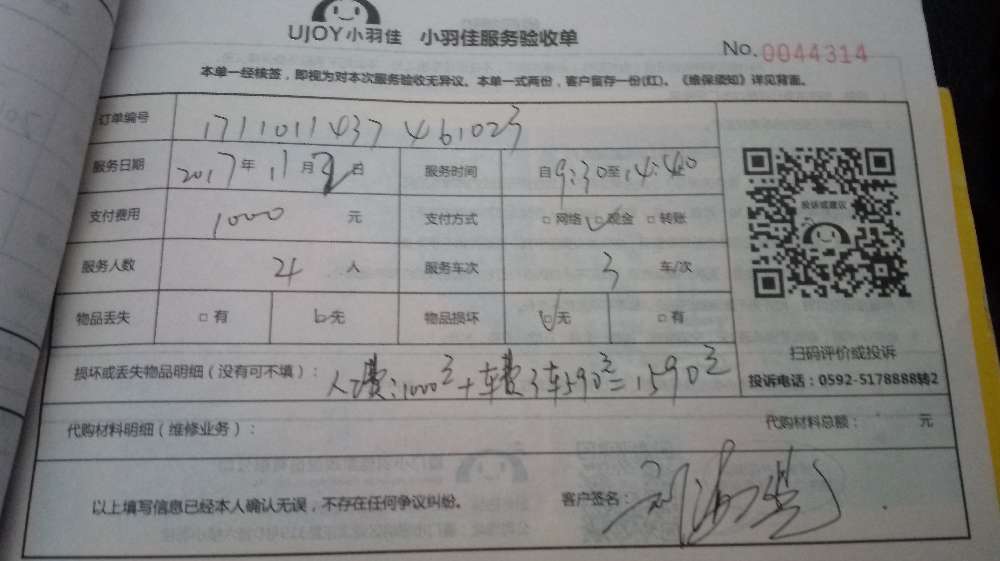 UJOY小羽佳 小羽佳服务验收单
No. 0044314
本单一经核签，即视为对本次服务验收无异议。本单一式两份，客户留存一份(红)。《维保须知》详见背面。
订单编号 1711011437461023
服务日期 2017年11月2日 服务时间 自9:30至14:40
支付费用 1000 元 支付方式 □网络 □现金 □转账
服务人数 4 人 服务车次 3 车/次
物品丢失 □有 □无 物品损坏 □无 □有
投诉或建议
扫码评价或投诉
投诉电话：0592-5178888转2
损坏或丢失物品明细（没有可不填）：人费:1000元+车费3车590元=1590元
代购材料明细（维修业务）： 代购材料总额： 元
以上填写信息已经本人确认无误，不存在任何争议纠纷。 客户签名：